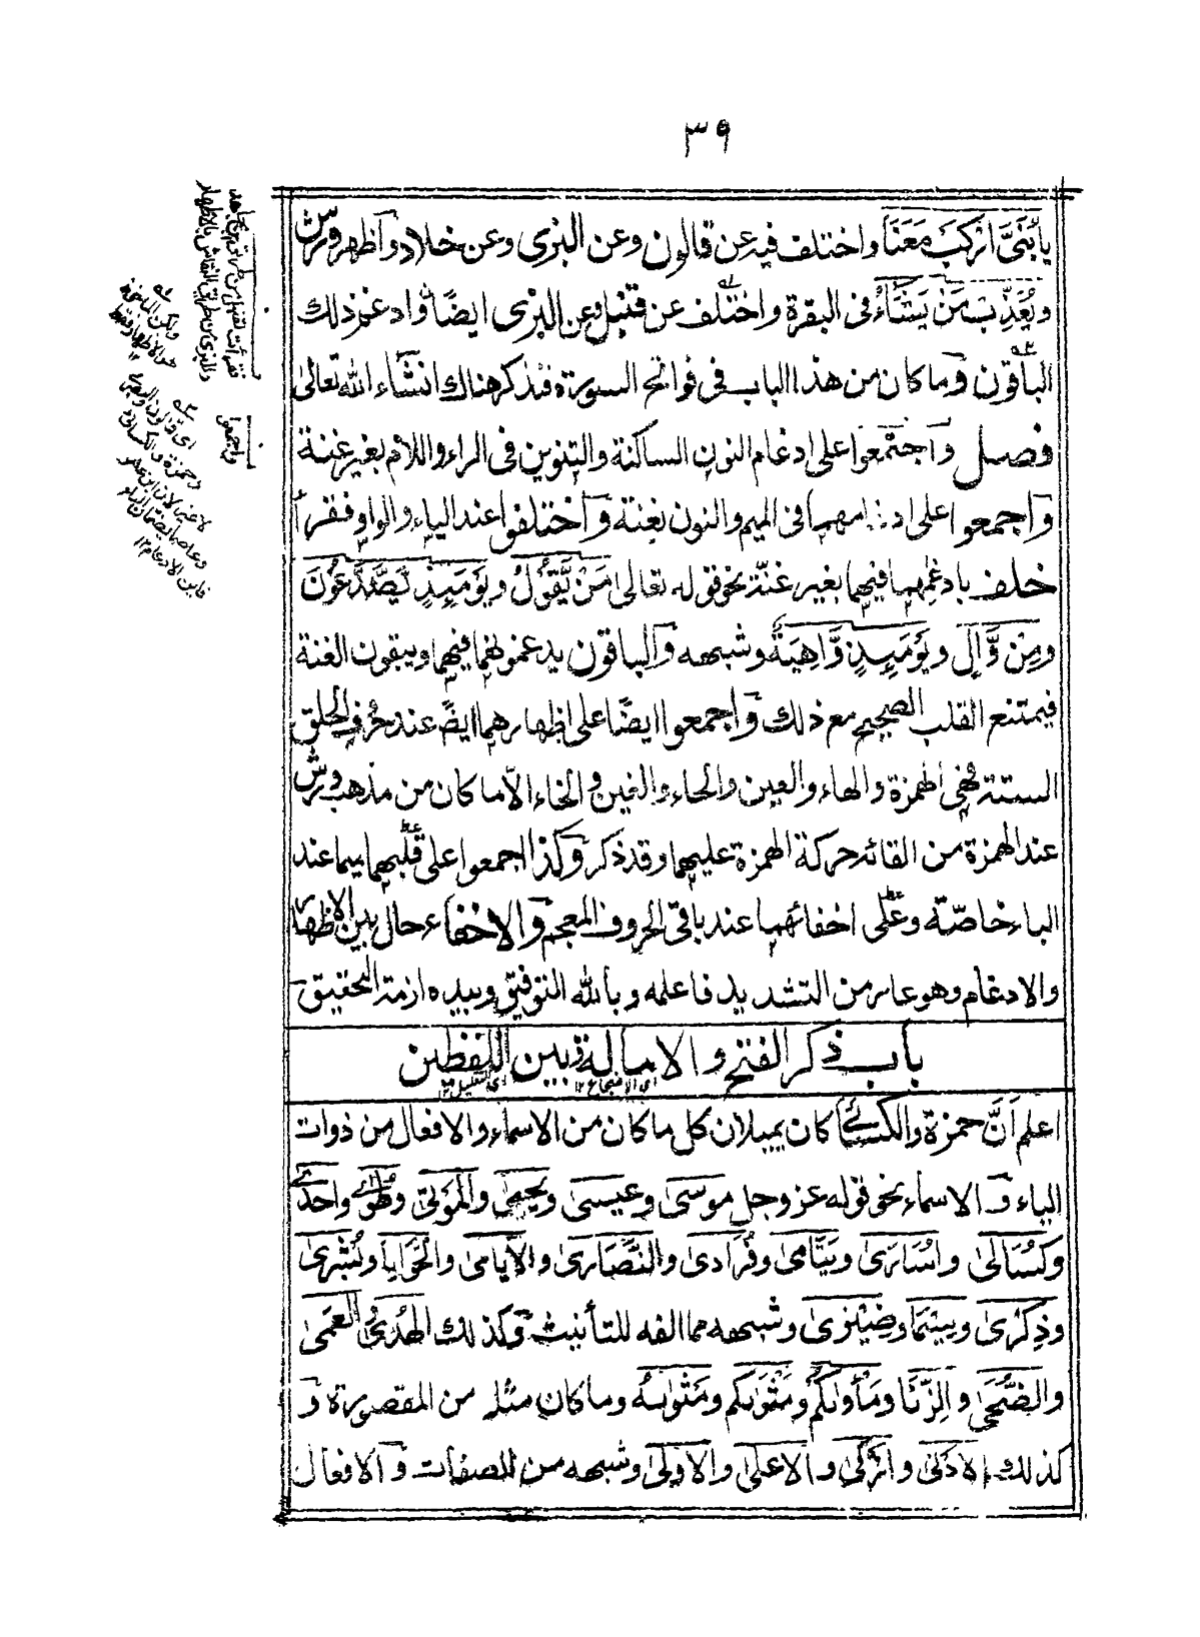 ٣٩
يٰبُنَىَّ ارْكَبْ مَعَنَا واختلف فيه عن قالون وعن البزى وعن خلاد واظهر ورش
ويُعَذِّبُ مَنْ يَشَاءُ فى البقرة واختلف عن قنبل وعن البزى ايضًا وادغم ذلك
الباقون وما كان من هذا الباب فى فواتح السورة فنذكر هناك انشاء الله تعالىٰ
فصل واجتمعوا على ادغام النون الساكنة والتنوين فى الراء واللام بغير غنة
واجمعوا على ادغامهما فى الميم والنون بغنة واختلفوا عند الياء والواو فقرأ
خلف بادغمهما فيهما بغير غنّة نحو قوله تعالى مَنْ يَّقُوْلُ ويَوْمَىِٕذٍ يَّصَّدَّعُوْنَ
ومِنْ وَّالٍ ويَوْمَىِٕذٍ وَّاهِيَةٌ وشبهه والباقون يدغمونهما فيهما ويبقون الغنة
فيمتنع القلب الصحيح مع ذلك واجمعوا ايضًا على اظهارهما ايضً عند حروف الحلق
الستة وهى الهمزة والهاء والعين والحاء والغين والخاء الّا ما كان من مذهب ورش
عند الهمزة من القائه حركة الهمزة عليهما وقد ذكر وكذا اجمعوا على قلبهما ميما عند
الباء خاصّة وعلى اخفائهما عند باقى الحروف المعجم والاخفاء حال بين الاظهار
والادغام وهو عار من التشديد فاعلمه وبالله التوفيق وبيده ازمة التحقيق
باب ذكر الفتح والامالة بين اللفظين
اى الاضجاع ١٢ اى التقليل ١٢
اعلم اَنَّ حمزة والكسائى كان يميلان كل ما كان من الاسماء والافعال من ذوات
الياء و الاسماء نحو قوله عز وجل موسىٰ وعيسىٰ ويحيىٰ والمَوْتىٰ وطُوًى واحدى
وكُسَالىٰ واُسَارىٰ ويَتَامىٰ وفُرَادىٰ والنَّصَارىٰ والاَيَامىٰ والحَوَايا وبُشْرىٰ
وذِكْرىٰ وسِيْمَا وضِيْزىٰ وشبهه مما الفه للتأنيث وكذلك الهُدىٰ العَمىٰ
والضُّحىٰ والزِّنَا ومَأْوٰىكُم ومَثْوٰىكُم ومَثْوٰىهُ وما كان مثله من المقصورة و
كذلك الاَدْنىٰ وازْكىٰ والاعلىٰ والاَولىٰ وشبهه من الصفات والافعال
واجمعوا